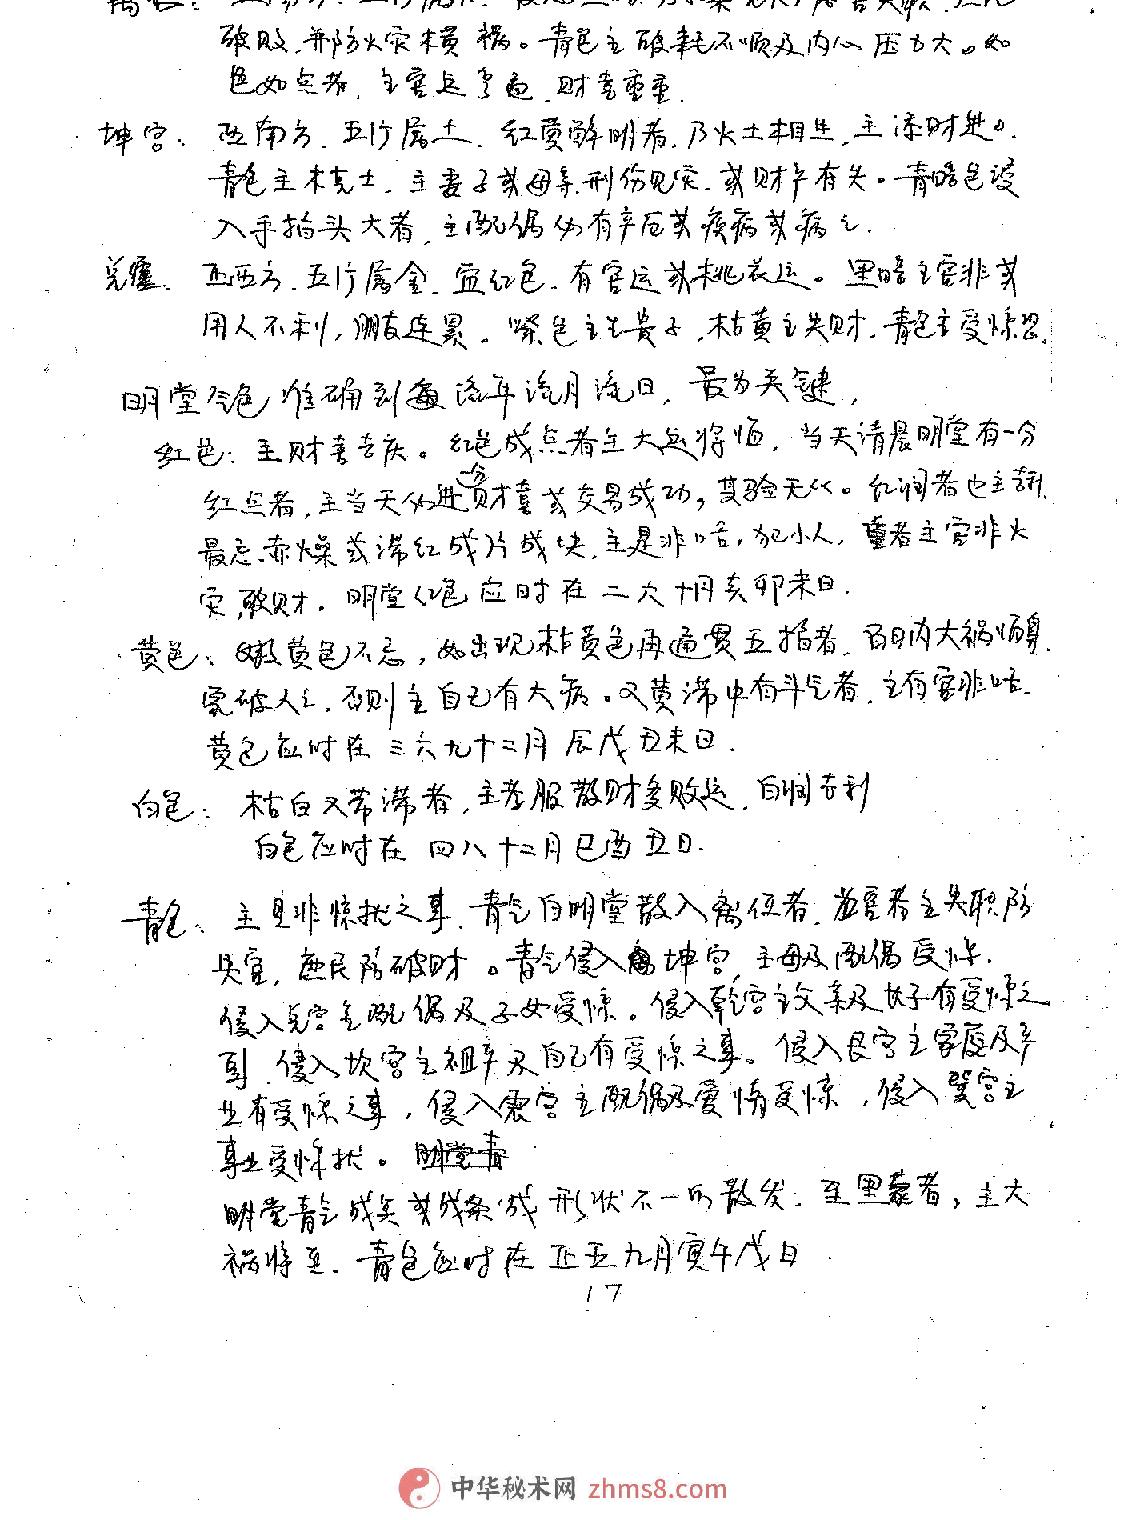 破败，并防火灾横祸。青色主破耗不顺及内心压力大。如
色如点者，主官运亨通，财喜重重，
坤宫：西南方，五行属土，红黄鲜明者，乃火土相生，主添财进口，
青色主木克土，主妻子或母亲刑伤见灾，或财产有失。青暗色侵
入手指头大者，主配偶伤有产厄或疾病或病亡．
兑宫：正西方，五行属金，宜红色，有官运或桃花运。黑暗主官非或
用人不利，朋友连累。紫色主生贵子，枯黄主失财，青色主受惊恐，
明堂气色准确到每流年流月流日，最为关键，
红色：主财喜吉庆。红色成点者主大运将临，当天清晨明堂有一分
红点者，主当天必进分财喜或交易成功，其验无比。红润者也主吉利，
最忌赤燥或滞红成片成块，主是非口舌，犯小人，重者主官非火
灾，破财．明堂红色应时在二六十月亥卯未日．
黄色：嫩黄色不忌，如出现枯黄色再通贯五指者，百日内大祸临身，
家破人亡，否则主自己有大病。又黄滞中有斗气者，主有官非口舌．
黄色应时在三六九十二月辰戌丑未日．
白色：枯白又带滞者，主孝服散财多败运，白润吉利
白色应时在四八十二月巳酉丑日．
青色：主是非惊扰之事，青气自明堂散入离位者，当官者主失职防
失官，庶民防破财。青气侵入坤宫，主母及配偶受惊．
侵入兑宫主配偶及子女受惊。侵入乾宫主父亲及女子有受惊之
事，侵入坎宫主祖辈及自己有受惊之事。侵入艮宫主家庭及产
业有受惊之事，侵入震宫主配偶及爱情受惊，侵入巽宫主
事业受惊扰。明堂青
明堂青气成点或成条或形状不一的散发，至黑蒙者，主大
祸将至．青色应时在正五九月寅午戌日
17
中华秘术网 zhms8.com